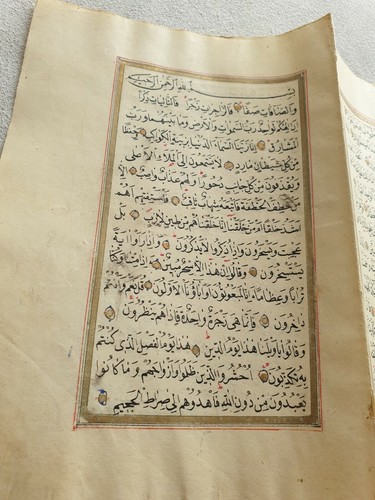 بسم الله الرحمن الرحيم
والصافات صفا فالزاجرات زجرا فالتاليات ذكرا
ان الهكم لواحد رب السموات والارض وما بينهما ورب
المشارق انا زينا السماء الدنيا بزينة الكواكب وحفظا
من كل شيطان مارد لا يسمعون الى الملاء الاعلى
ويقذفون من كل جانب دحورا ولهم عذاب واصب الا
من خطف الخطفة فاتبعه شهاب ثاقب فاستفتهم اهم
اشد خلقا ام من خلقنا انا خلقناهم من طين لازب بل
عجبت ويسخرون واذا ذكروا لا يذكرون واذا راوا اية
يستسخرون وقالوا ان هذا الا سحر مبين ءاذا متنا وكنا
ترابا وعظاما ءانا لمبعوثون اواباؤنا الاولون قل نعم وانتم
داخرون فانما هي زجرة واحدة فاذا هم ينظرون
وقالوا يا ويلنا هذا يوم الدين هذا يوم الفصل الذي كنتم
به تكذبون احشروا الذين ظلموا وازواجهم وما كانوا
يعبدون من دون الله فاهدوهم الى صراط الجحيم